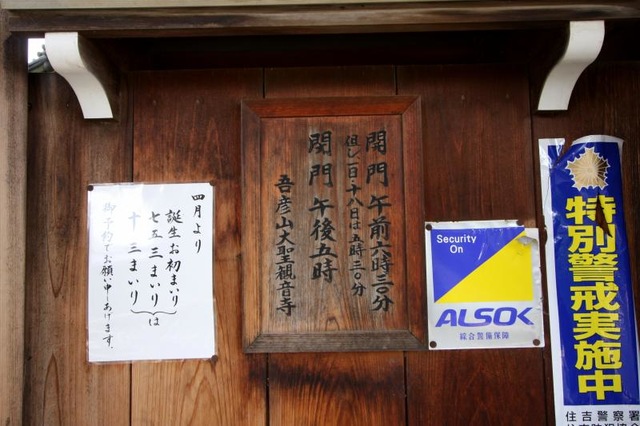 四月より
誕生お初まいり
七五三まいり
十三まいり
は
御予約でお願い申しあげます。
開門 午前六時三〇分
但し一日十八日は五時三〇分
閉門 午後五時
吾彦山大聖観音寺
Security
On
ALSOK
綜合警備保障
特別警戒実施中
住吉警察署